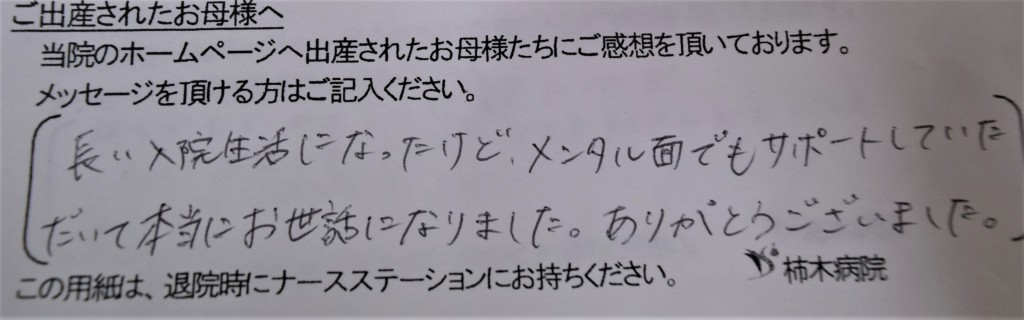 ご出産されたお母様へ
当院のホームページへ出産されたお母様たちにご感想を頂いております。
メッセージを頂ける方はご記入ください。
長い入院生活になったけど、メンタル面でもサポートしていた
だいて本当にお世話になりました。ありがとうございました。
この用紙は、退院時にナースステーションにお持ちください。
柿木病院